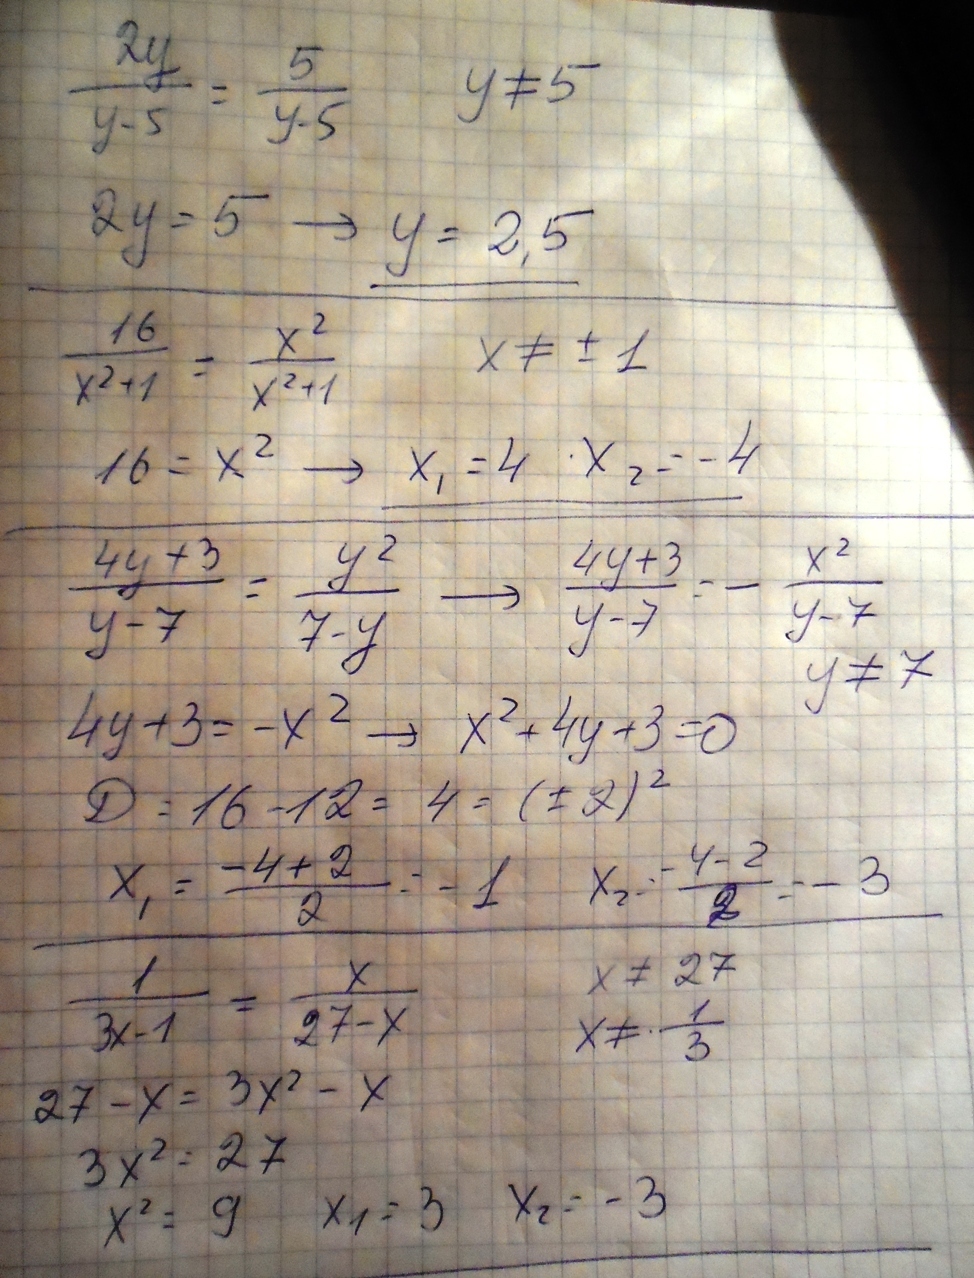 2y/(y-5) = 5/(y-5) y≠5
2y = 5 → y = 2,5
16/(x²+1) = x²/(x²+1) x ≠ ±1
16 = x² → x₁ = 4 · x₂ = -4
(4y+3)/(y-7) = y²/(7-y) → (4y+3)/(y-7) = - x²/(y-7)
y≠7
4y+3 = -x² → x²+4y+3=0
D = 16-12 = 4 = (±2)²
x₁ = (-4+2)/2 = -1 x₂ = (-4-2)/2 = -3
1/(3x-1) = x/(27-x) x ≠ 27
x ≠ · 1/3
27-x = 3x² - x
3x² = 27
x² = 9 x₁ = 3 x₂ = -3